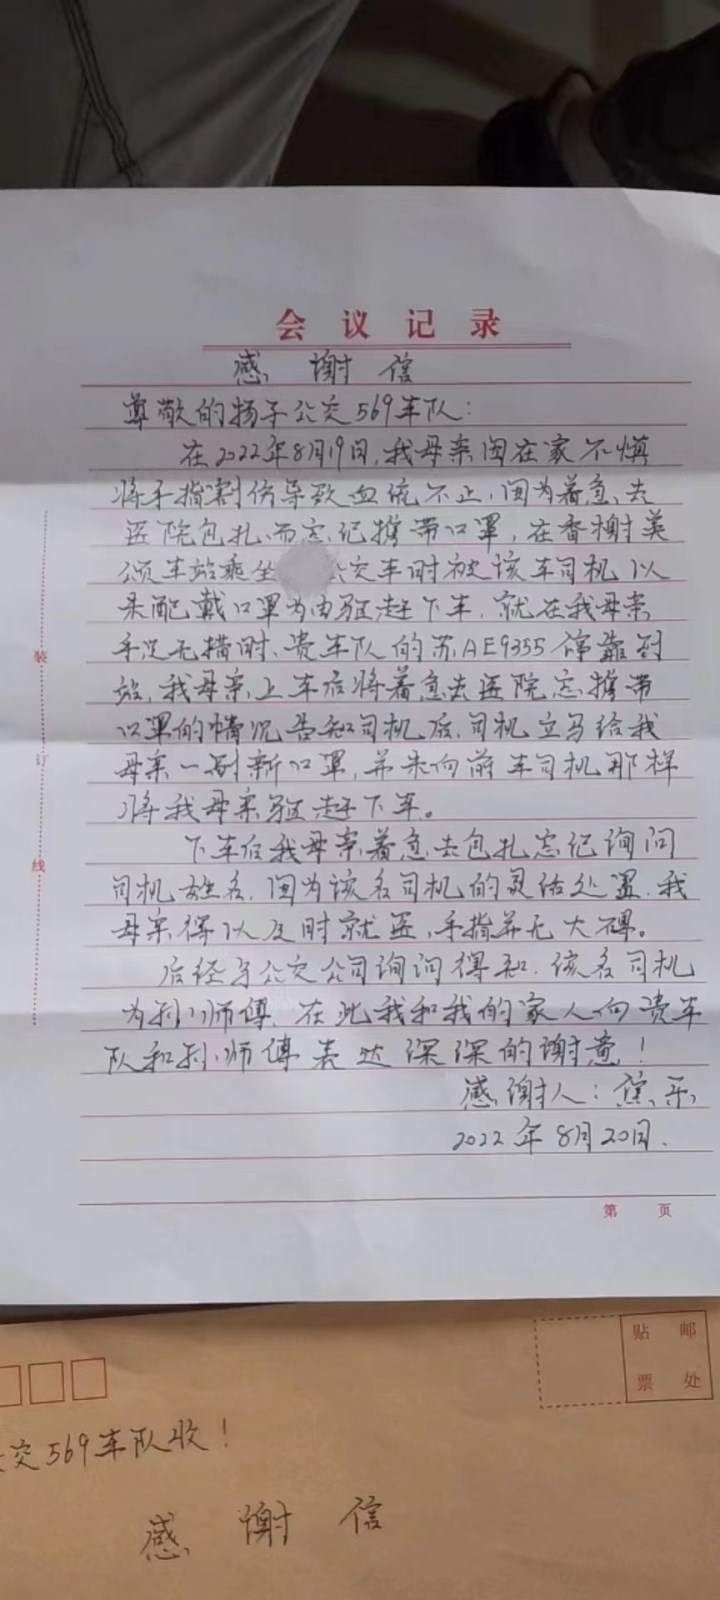 会 议 记 录
感 谢 信
尊敬的扬子公交569车队：
在2022年8月19日，我母亲因在家不慎
将手指割伤导致血流不止，因为着急去
医院包扎而忘记携带口罩，在香榭美
颂车站乘坐 公交车时被该车司机以
未配戴口罩为由驱赶下车，就在我母亲
手足无措时，贵车队的苏AE9355停靠到
站，我母亲上车后将着急去医院忘携带
口罩的情况告知司机后，司机立马给我
母亲一副新口罩，并未向前车司机那样
将我母亲驱赶下车。
下车后我母亲着急去包扎忘记询问
司机姓名，因为该名司机的灵活处置，我
母亲得以及时就医，手指并无大碍。
后经与公交公司询问得知，该名司机
为孙 师傅，在此我和我的家人向贵车
队和孙 师傅表达深深的谢意！
感谢人：
2022年8月20日.
装
订
线
第 页
贴 邮
票 处
交569车队收！
感 谢 信